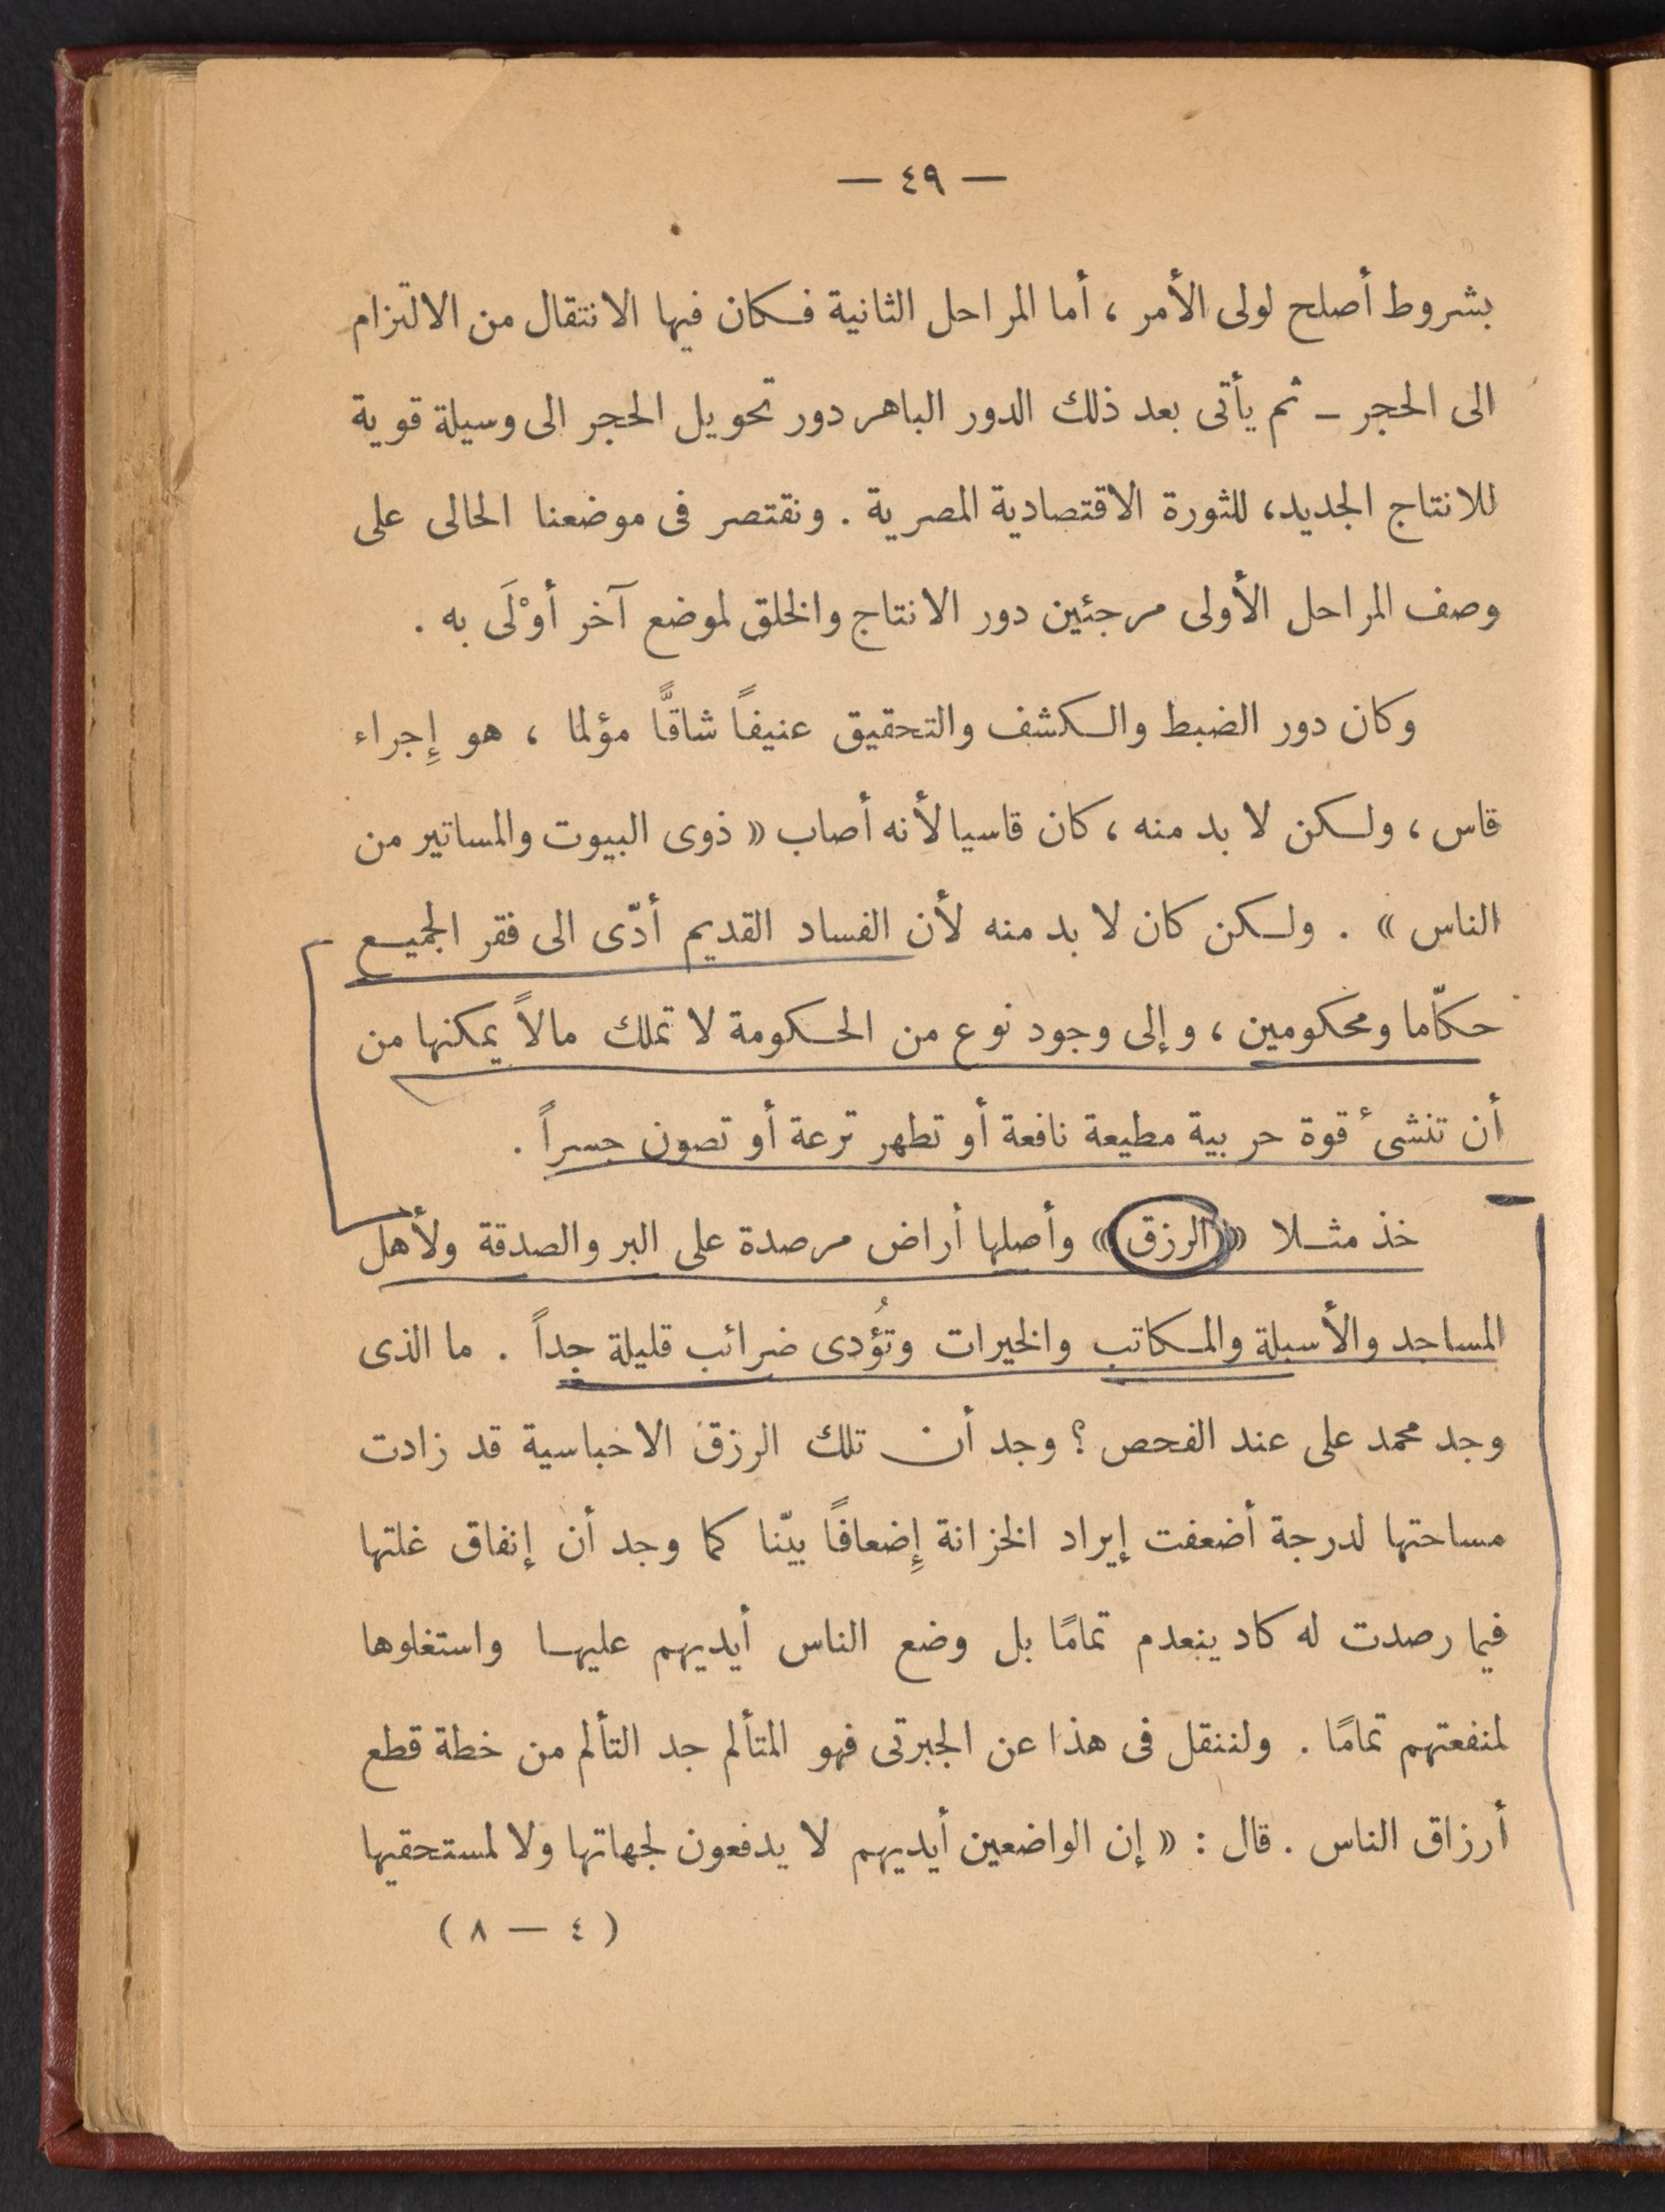 — ٤٩ —
بشروط أصلح لولى الأمر ، أما المراحل الثانية فكان فيها الانتقال من الالتزام
الى الحجر – ثم يأتى بعد ذلك الدور الباهر دور تحويل الحجر الى وسيلة قوية
للانتاج الجديد، للثورة الاقتصادية المصرية . ونقتصر فى موضعنا الحالى على
وصف المراحل الأولى مرجئين دور الانتاج والخلق لموضع آخر أوْلَى به .
وكان دور الضبط والكشف والتحقيق عنيفاً شاقًّا مؤلما ، هو إِجراء
قاس ، ولكن لا بد منه ، كان قاسيا لأنه أصاب « ذوى البيوت والمساتير من
الناس » . ولكن كان لا بد منه لأن الفساد القديم أدّى الى فقر الجميع
حكّاما ومحكومين ، وإلى وجود نوع من الحكومة لا تملك مالاً يمكنها من
أن تنشئ قوة حربية مطيعة نافعة أو تطهر ترعة أو تصون جسراً .
خذ مثلا « الرزق » وأصلها أراض مرصدة على البر والصدقة ولأهل
المساجد والأسبلة والمكاتب والخيرات وتُؤدى ضرائب قليلة جداً . ما الذى
وجد محمد على عند الفحص ؟ وجد أن تلك الرزق الاحباسية قد زادت
مساحتها لدرجة أضعفت إيراد الخزانة إِضعافاً بيّنا كما وجد أن إنفاق غلتها
فيما رصدت له كاد ينعدم تمامًا بل وضع الناس أيديهم عليها واستغلوها
لمنفعتهم تمامًا . ولننقل فى هذا عن الجبرتى فهو المتألم جد التألم من خطة قطع
أرزاق الناس . قال : « إن الواضعين أيديهم لا يدفعون لجهاتها ولا لمستحقيها
( ٤ — ٨ )